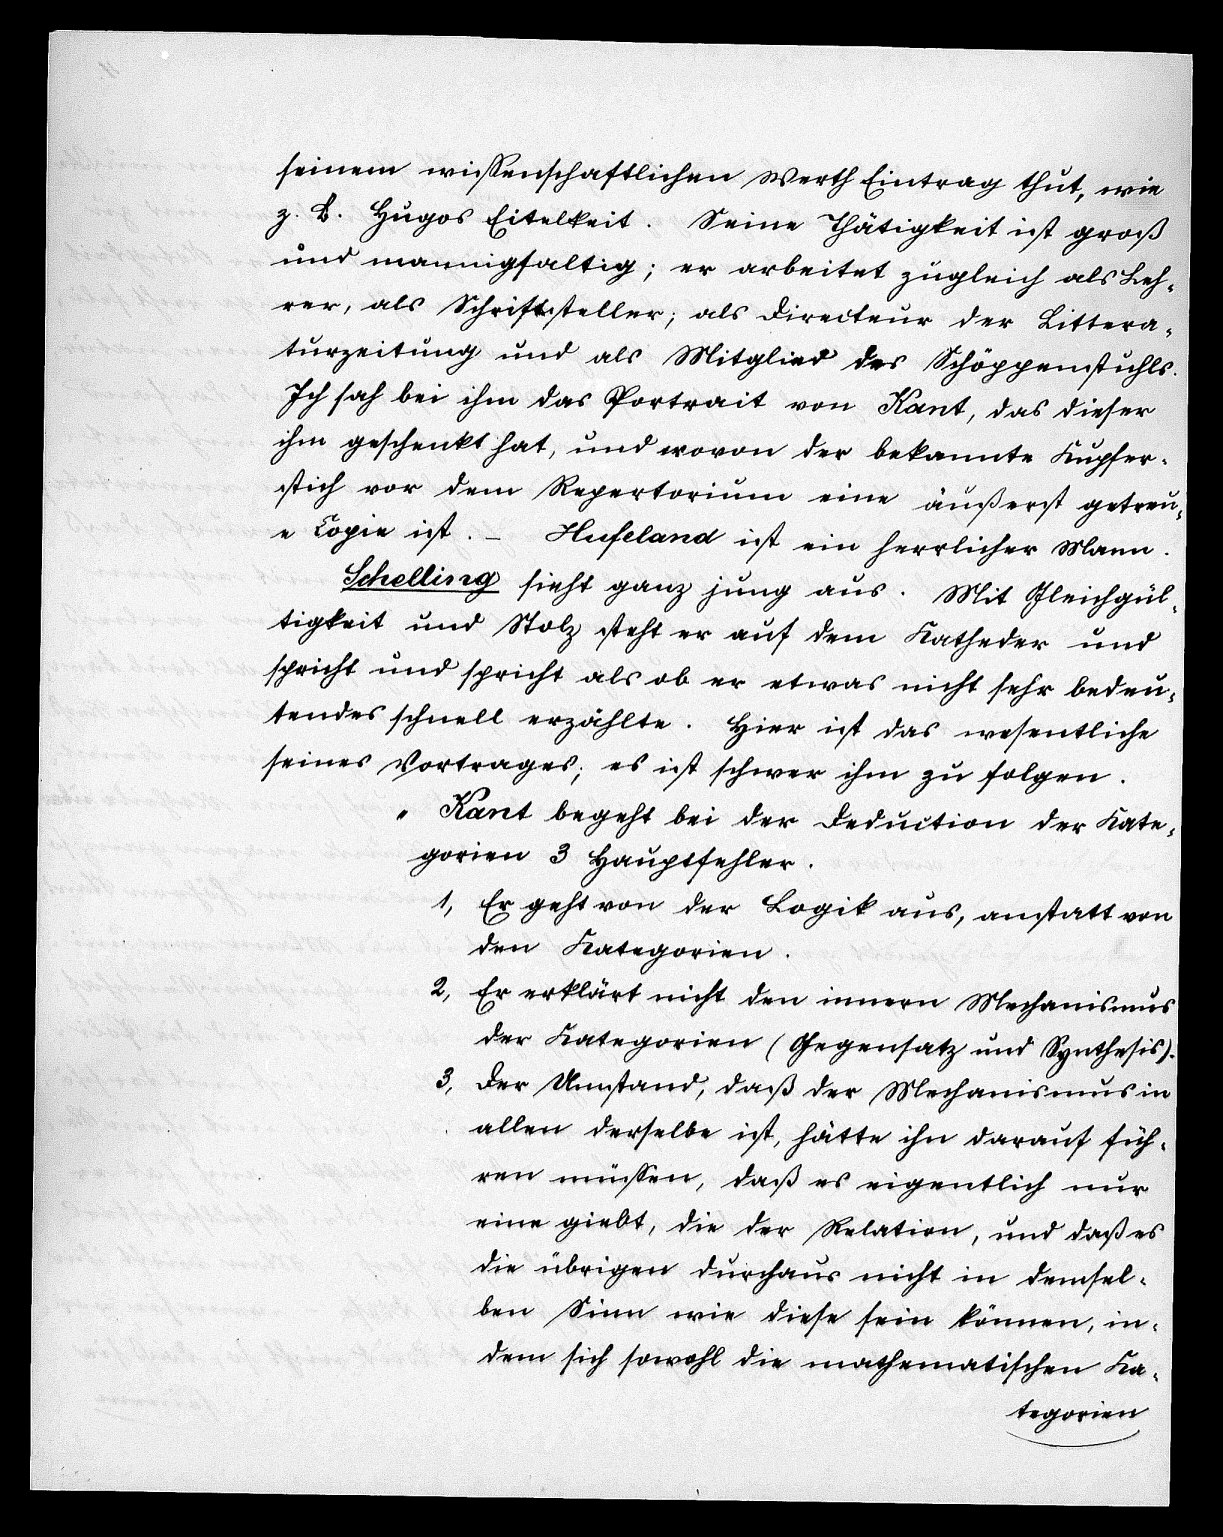 seinem wissenschaftlichen Werth Eintrag thut, wie
z. B. Hugos Eitelkeit. Seine Thätigkeit ist groß
und mannigfaltig; er arbeitet zugleich als Leh-
rer, als Schriftsteller, als Directeur der Littera-
turzeitung und als Mitglied des Schöppenstuhls.
Ich sah bei ihm das Portrait von Kant, das dieser
ihm geschenkt hat, und wovon der bekannte Kupfer-
stich vor dem Repertorium eine äußerst getreu-
e Copie ist. – Hufeland ist ein herrlicher Mann.
Schelling sieht ganz jung aus. Mit Gleichgül-
tigkeit und Stolz steht er auf dem Katheder und
spricht und spricht als ob er etwas nicht sehr bedeu-
tendes schnell erzählte. Hier ist das wesentliche
seines Vortrages; es ist schwer ihm zu folgen.
" Kant begeht bei der Deduction der Kate-
gorien 3 Hauptfehler.
1, Er geht von der Logik aus, anstatt von
den Kategorien.
2, Er erklärt nicht den innern Mechanismus
der Kategorien (Gegensatz und Synthesis).
3, Der Umstand, daß der Mechanismus in
allen derselbe ist, hätte ihn darauf füh-
ren müssen, daß es eigentlich nur
eine giebt, die der Relation, und daß es
die übrigen durchaus nicht in demsel-
ben Sinn wie diese sein können, in-
dem sich sowohl die mathematischen Ka-
tegorien